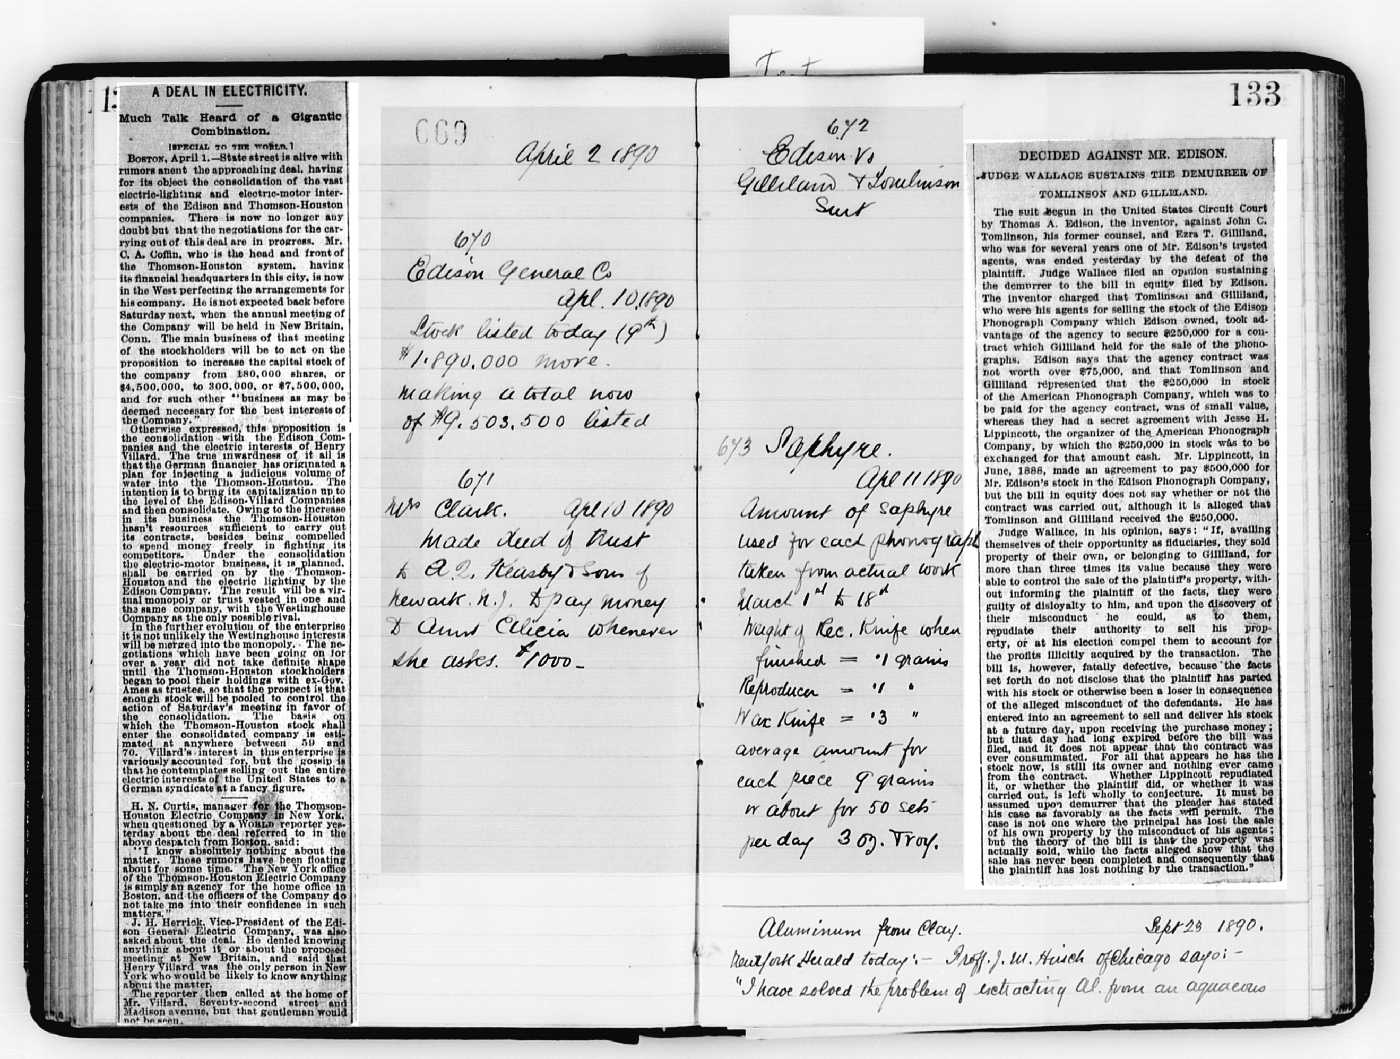 A DEAL IN ELECTRICITY.
Much Talk Heard of a Gigantic
Combination.
[SPECIAL TO THE WORLD.]
BOSTON, April 1.—State street is alive with
rumors anent the approaching deal, having
for its object the consolidation of the vast
electric-lighting and electric-motor inter-
ests of the Edison and Thomson-Houston
companies. There is now no longer any
doubt but that the negotiations for the car-
rying out of this deal are in progress. Mr.
C. A. Coffin, who is the head and front of
the Thomson-Houston system, having
its financial headquarters in this city, is now
in the West perfecting the arrangements for
his company. He is not expected back before
Saturday next, when the annual meeting of
the Company will be held in New Britain,
Conn. The main business of that meeting
of the stockholders will be to act on the
proposition to increase the capital stock of
the company from 180,000 shares, or
$4,500,000, to 300,000, or $7,500,000,
and for such other "business as may be
deemed necessary for the best interests of
the Company."
Otherwise expressed, this proposition is
the consolidation with the Edison Com-
panies and the electric interests of Henry
Villard. The true inwardness of it all is
that the German financier has originated a
plan for injecting a judicious volume of
water into the Thomson-Houston. The
intention is to bring its capitalization up to
the level of the Edison-Villard Companies
and then consolidate. Owing to the increase
in its business the Thomson-Houston
hasn't resources sufficient to carry out
its contracts, besides being compelled
to spend money freely in fighting its
competitors. Under the consolidation
the electric-motor business, it is planned,
shall be carried on by the Thomson-
Houston and the electric lighting by the
Edison Company. The result will be a vir-
tual monopoly or trust vested in one and
the same company, with the Westinghouse
Company as the only possible rival.
In the further evolution of the enterprise
it is not unlikely the Westinghouse interests
will be merged into the monopoly. The ne-
gotiations which have been going on for
over a year did not take definite shape
until the Thomson-Houston stockholders
began to pool their holdings with ex-Gov.
Ames as trustee, so that the prospect is that
enough stock will be pooled to control the
action of Saturday's meeting in favor of
the consolidation. The basis on
which the Thomson-Houston stock shall
enter the consolidated company is esti-
mated at anywhere between 50 and
70. Villard's interest in this enterprise is
variously accounted for, but the gossip is
that he contemplates selling out the entire
electric interests of the United States to a
German syndicate at a fancy figure.
H. N. Curtis, manager for the Thomson-
Houston Electric Company in New York,
when questioned by a WORLD reporter yes-
terday about the deal referred to in the
above despatch from Boston, said:
"I know absolutely nothing about the
matter. These rumors have been floating
about for some time. The New York office
of the Thomson-Houston Electric Company
is simply an agency for the home office in
Boston, and the officers of the Company do
not take me into their confidence in such
matters."
J. H. Herrick, Vice-President of the Edi-
son General Electric Company, was also
asked about the deal. He denied knowing
anything about it or about the proposed
meeting at New Britain, and said that
Henry Villard was the only person in New
York who would be likely to know anything
about the matter.
The reporter then called at the home of
Mr. Villard, Seventy-second street and
Madison avenue, but that gentleman would
not be seen.
669
April 2 1890
670
Edison General Co
Apl. 10, 1890
Stock listed today (9th)
$1.890.000 more.
making a total now
of $9.503.500 listed
671
Mrs Clark. Apl 10 1890
Made deed of trust
to A. Q. Keasby & Sons of
Newark. N.J. to pay money
to Aunt Clicia whenever
she asks. $1000-
672
Edison Vs
Gilliland & Tomlinson
Suit
673 Saphyre.
Apl 11 1890
Amount of Saphyre
used for each phonograph
taken from actual work
March 1st to 18th
Weight of Rec. Knife when
finished = .1 grains
Reproducer = .1 "
Wax Knife = .3 "
average amount for
each piece 9 grains
or about for 50 sets
per day 3 oz. Troy.
133
DECIDED AGAINST MR. EDISON.
JUDGE WALLACE SUSTAINS THE DEMURRER OF
TOMLINSON AND GILLILAND.
The suit begun in the United States Circuit Court
by Thomas A. Edison, the inventor, against John C.
Tomlinson, his former counsel, and Ezra T. Gilliland,
who was for several years one of Mr. Edison's trusted
agents, was ended yesterday by the defeat of the
plaintiff. Judge Wallace filed an opinion sustaining
the demurrer to the bill in equity filed by Edison.
The inventor charged that Tomlinson and Gilliland,
who were his agents for selling the stock of the Edison
Phonograph Company which Edison owned, took ad-
vantage of the agency to secure $250,000 for a con-
tract which Gilliland held for the sale of the phono-
graphs. Edison says that the agency contract was
not worth over $75,000, and that Tomlinson and
Gilliland represented that the $250,000 in stock
of the American Phonograph Company, which was to
be paid for the agency contract, was of small value,
whereas they had a secret agreement with Jesse H.
Lippincott, the organizer of the American Phonograph
Company, by which the $250,000 in stock was to be
exchanged for that amount cash. Mr. Lippincott, in
June, 1888, made an agreement to pay $500,000 for
Mr. Edison's stock in the Edison Phonograph Company,
but the bill in equity does not say whether or not the
contract was carried out, although it is alleged that
Tomlinson and Gilliland received the $250,000.
Judge Wallace, in his opinion, says: "If, availing
themselves of their opportunity as fiduciaries, they sold
property of their own, or belonging to Gilliland, for
more than three times its value because they were
able to control the sale of the plaintiff's property, with-
out informing the plaintiff of the facts, they were
guilty of disloyalty to him, and upon the discovery of
their misconduct he could, as to them,
repudiate their authority to sell his prop-
erty, or at his election compel them to account for
the profits illicitly acquired by the transaction. The
bill is, however, fatally defective, because the facts
set forth do not disclose that the plaintiff has parted
with his stock or otherwise been a loser in consequence
of the alleged misconduct of the defendants. He has
entered into an agreement to sell and deliver his stock
at a future day, upon receiving the purchase money;
but that day had long expired before the bill was
filed, and it does not appear that the contract was
ever consummated. For all that appears he has the
stock now, is still its owner and nothing ever came
from the contract. Whether Lippincott repudiated
it, or whether the plaintiff did, or whether it was
carried out, is left wholly to conjecture. It must be
assumed upon demurrer that the pleader has stated
his case as favorably as the facts will permit. The
case is not one where the principal has lost the sale
of his own property by the misconduct of his agents;
but the theory of the bill is that the property was
actually sold, while the facts alleged show that the
sale has never been completed and consequently that
the plaintiff has lost nothing by the transaction."
Aluminum from Clay. Sept 23 1890.
New York Herald today:- Proff. J. M. Hirsch of Chicago says:-
"I have solved the problem of extracting Al. from an aquaeous